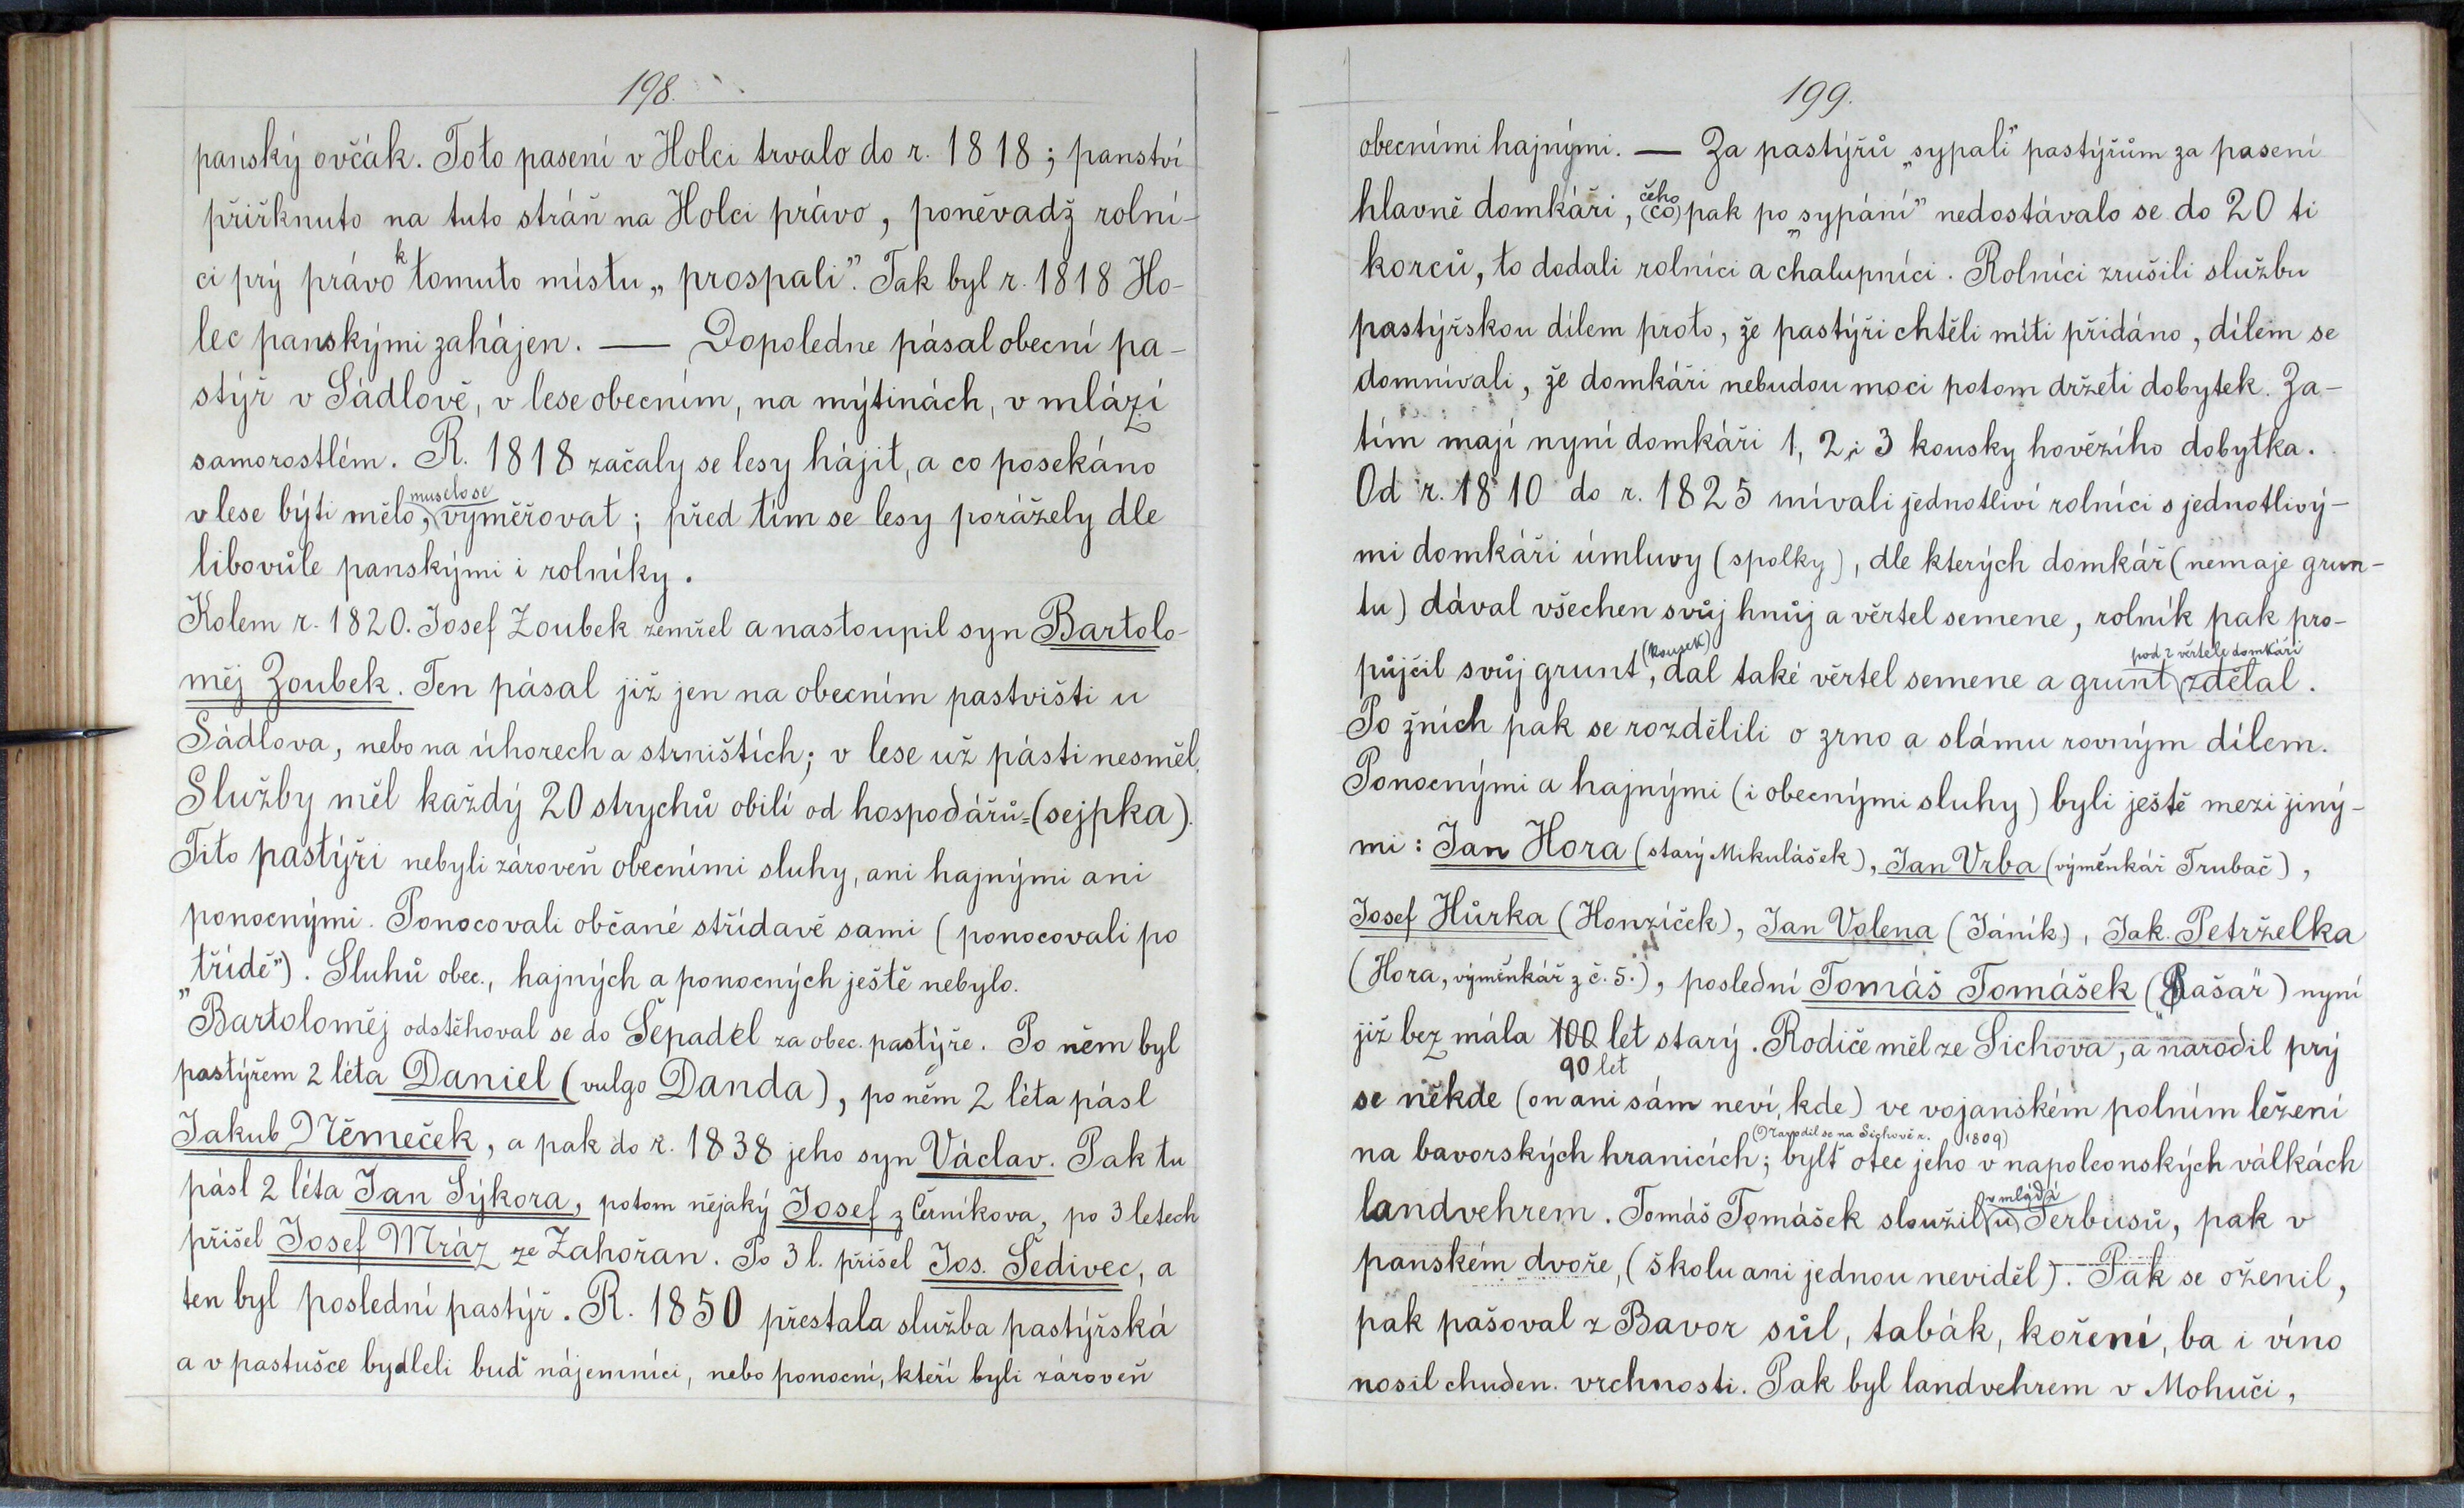 198.
panský ovčák. Toto pasení v Holci trvalo do r. 1818; panství
přiřknuto na tuto stráň na Holci právo, poněvadž rolní-
ci prý právo k tomuto místu „prospali”. Tak byl r. 1818 Ho-
lec panskými zahájen. — Dopoledne pásal obecní pa-
stýř v Sádlově, v lese obecním, na mýtinách, v mlází
samorostlém. R. 1818 začaly se lesy hájit, a co posekáno
v lese býti mělo, muselo se vyměřovat; před tím se lesy porážely dle
libovůle panskými i rolníky.
Kolem r. 1820. Josef Zoubek zemřel a nastoupil syn Bartolo-
měj Zoubek. Ten pásal již jen na obecním pastvišti u
Sádlova, nebo na úhorech a strništích; v lese už pásti nesměl.
Služby měl každý 20 strychů obilí od hospodářů=(sejpka).
Tito pastýři nebyli zároveň obecními sluhy, ani hajnými ani
ponocnými. Ponocovali občané střídavě sami (ponocovali po
„třídě”). Sluhů obec., hajných a ponocných ještě nebylo.
Bartoloměj odstěhoval se do Šepadel za obec. pastýře. Po něm byl
pastýřem 2 léta Daniel (vulgo Danda), po něm 2 léta pásl
Jakub Němeček, a pak do r. 1838 jeho syn Václav. Pak tu
pásl 2 léta Jan Sýkora, potom nějaký Josef z Černíkova, po 3 letech
přišel Josef Mráz ze Zahořan. Po 3 l. přišel Jos. Šedivec, a
ten byl poslední pastýř. R. 1850 přestala služba pastýřská
a v pastušce bydleli buď nájemníci, nebo ponocní, kteří byli zároveň
199.
obecními hajnými. — Za pastýřů „sypali” pastýřům za pasení
hlavně domkáři, čeho (co) pak po „sypání” nedostávalo se do 20 ti
korců, to dodali rolníci a chalupníci. Rolníci zrušili službu
pastýřskou dílem proto, že pastýři chtěli míti přidáno, dílem se
domnívali, že domkáři nebudou moci potom držeti dobytek. Za-
tím mají nyní domkáři 1, 2 i 3 kousky hovězího dobytka.
Od r. 1810 do r. 1825 mívali jednotliví rolníci s jednotlivý-
mi domkáři úmluvy (spolky), dle kterých domkář (nemaje grun-
tu) dával všechen svůj hnůj a věrtel semene, rolník pak pro-
půjčil svůj grunt (kousek), dal také věrtel semene a grunt pod 2 věrtele domkáři zdělal.
Po žních pak se rozdělili o zrno a slámu rovným dílem.
Ponocnými a hajnými (i obecnými sluhy) byli ještě mezi jiný-
mi: Jan Hora (starý Mikulášek), Jan Vrba (výměnkář Trubač),
Josef Hůrka (Honzíček), Jan Volena (Jáník), Jak. Petrželka
(Hora, výměnkář z č. 5.), poslední Tomáš Tomášek („Pašař) nyní
již bez mála 100 let starý. Rodiče měl ze Sichova, a narodil prý
90 let
se někde (on ani sám neví, kde) ve vojanském polním ležení
(Narodil se na Sichově r. 1809)
na bavorských hranicích; bylť otec jeho v napoleonských válkách
landvehrem. Tomáš Tomášek sloužil v mládí u Serbusů, pak v
panském dvoře, (školu ani jednou neviděl). Pak se oženil,
pak pašoval z Bavor sůl, tabák, koření, ba i víno
nosil chuden. vrchnosti. Pak byl landvehrem v Mohuči,